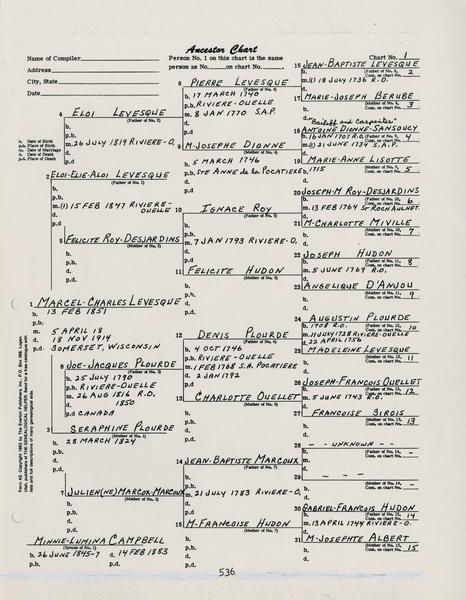 Ancestor Chart
Name of Compiler
Address
City, State
Date
Person No. 1 on this chart is the same
person as No. on chart No.
Chart No. 1
1 MARCEL-CHARLES LEVESQUE
b. 13 FEB 1851
p.b.
m. 5 APRIL 18
d. 18 NOV 1914
p.d. SOMERSET, WISCONSIN
MINNIE-LUMINA CAMPBELL
(Spouse of No. 1)
b. 26 JUNE 1845-7 d. 14 FEB 1883
p.b. p.d.
2 ELOI-ELIE-ALOI LEVESQUE
(Father of No. 1)
b.
p.b.
m. (1) 15 FEB 1847 RIVIERE-
OUELLE
d.
p.d.
3 SERAPHINE PLOURDE
(Mother of No. 1)
b. 28 MARCH 1824
p.b.
d.
p.d.
4 ELOI LEVESQUE
(Father of No. 2)
b.
p.b.
m. 26 JULY 1819 RIVIERE-O,
d.
p.d.
b. Date of Birth
p.b. Place of Birth
m. Date of Marriage
d. Date of Death
p.d. Place of Death
5 FELICITE ROY-DESJARDINS
(Mother of No. 2)
b.
p.b.
d.
p.d.
JOE-JACQUES PLOURDE
(Father of No. 3)
b. 25 JULY 1790
p.b. RIVIERE-OUELLE
m. 26 AUG 1816 R.O.
d. 1850
p.d CANADA
7 JULIEN(NE) MARCOX-MARCOUX
(Mother of No. 3)
b.
p.b.
d.
p.d.
8 PIERRE LEVESQUE
(Father of No. 4)
b. 17 MARCH 1740
p.b. RIVIERE-OUELLE
m. 8 JAN 1770 S.A.P.
d.
p.d.
9 M-JOSEPHE DIONNE
(Mother of No. 4)
b. 5 MARCH 1746
p.b. STE ANNE de la POCATIERE
d.
p.d.
10 IGNACE ROY
(Father of No. 5)
b.
p.b.
m. 7 JAN 1793 RIVIERE-O,
d.
p.d.
11 FELICITE HUDON
(Mother of No. 5)
b.
p.b.
d.
p.d.
12 DENIS PLOURDE
(Father of No. 6)
b. 4 OCT 1746
p.b. RIVIERE-OUELLE
m. 1 FEB 1768 S.A. POCATIERE
d. 2 JAN 1792
p.d.
13 CHARLOTTE OUELLET
(Mother of No. 6)
b.
p.b.
d.
p.d.
14 JEAN-BAPTISTE MARCOUX
(Father of No. 7)
b.
p.b.
m. 21 JULY 1783 RIVIERE-O,
d.
p.d.
15 M-FRANCOISE HUDON
(Mother of No. 7)
b.
p.b.
d.
p.d.
16 JEAN-BAPTISTE LEVESQUE
(Father of No. 8, Cont. on chart No. 2)
m. (1) 18 JULY 1736 R.O.
17 MARIE-JOSEPH BERUBE
(Mother of No. 8, Cont. on chart No. 3)
"Bailiff and Carpenter"
18 ANTOINE DIONNE-SANSOUCY
(Father of No. 9, Cont. on chart No. 4)
b. 16 JAN 1707 R.O.
m. (1) 21 JUNE 1734 S.A.P.
19 MARIE-ANNE LISOTTE
(Mother of No. 9, Cont. on chart No. 5)
b. 1715
20 JOSEPH-M ROY-DESJARDINS
(Father of No. 10, Cont. on chart No. 6)
m. 13 FEB 1764 ST ROCH AULNET
21 M-CHARLOTTE MIVILLE
(Mother of No. 10, Cont. on chart No. 7)
22 JOSEPH HUDON
(Father of No. 11, Cont. on chart No. 8)
m. 5 JUNE 1769 R.O.
23 ANGELIQUE D'ANJOU
(Mother of No. 11, Cont. on chart No. 9)
24 AUGUSTIN PLOURDE
(Father of No. 12, Cont. on chart No. 10)
b. 1708 R.O.
m. 11 JULY 1728 RIVIERE-OUELLE
d. 22 APRIL 1756
25 MADELEINE LEVESQUE
(Mother of No. 12, Cont. on chart No. 11)
26 JOSEPH-FRANCOIS OUELLET
(Father of No. 13, Cont. on chart No. 12)
m. 5 JUNE 1743 R.O.
27 FRANCOISE SIROIS
(Mother of No. 13, Cont. on chart No. 13)
28 -- UNKNOWN --
(Father of No. 14, Cont. on chart No. -)
29 - - -
(Mother of No. 14, Cont. on chart No. -)
30 GABRIEL-FRANCOIS HUDON
(Father of No. 15, Cont. on chart No. 14)
m. 13 APRIL 1744 RIVIERE-O.
31 M-JOSEPHTE ALBERT
(Mother of No. 15, Cont. on chart No. 15)
536